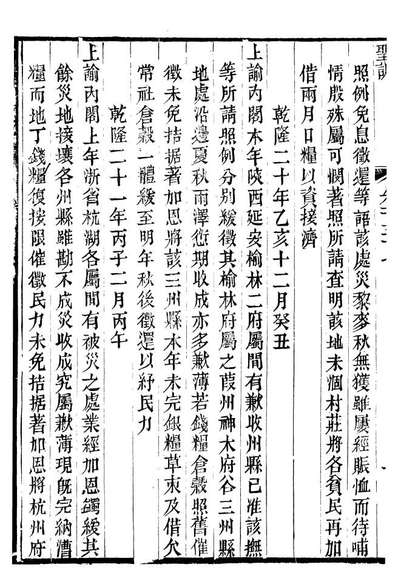 聖訓
照例免息徵還等語該處災黎麥秋無獲雖屢經賑恤而待哺
情殷殊屬可憫著照所請查明該地未涸村莊將各貧民再加
借兩月口糧以資接濟
乾隆二十年乙亥十二月癸丑
上諭內閣本年陝西延安榆林二府屬間有歉收州縣已准該撫
等所請照例分別緩徵其榆林府屬之葭州神木府谷三州縣
地處沿邊夏秋雨澤愆期收成亦多歉薄若錢糧倉穀照舊催
徵未免拮据著加恩將該三州縣本年未完銀糧草束及借欠
常社倉穀一體緩至明年秋後徵還以紓民力
乾隆二十一年丙子二月丙午
上諭內閣上年浙省杭湖各屬間有被災之處業經加恩蠲緩其
餘災地接壤各州縣雖勘不成災收成究屬歉薄現既完納漕
糧而地丁錢糧復按限催徵民力未免拮据著加恩將杭州府